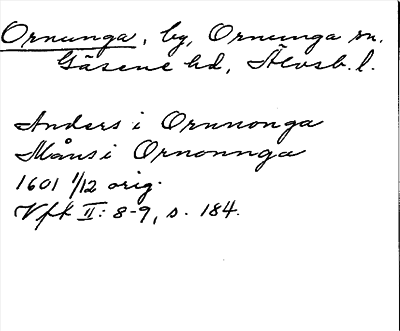 Ornunga, by, Ornunga sn.
Gäsene hd, Älvsb. l.
Anders i Ornnonga
Måns i Ornonnga
1601 1/12 orig.
Vfk II: 8-9, s. 184.